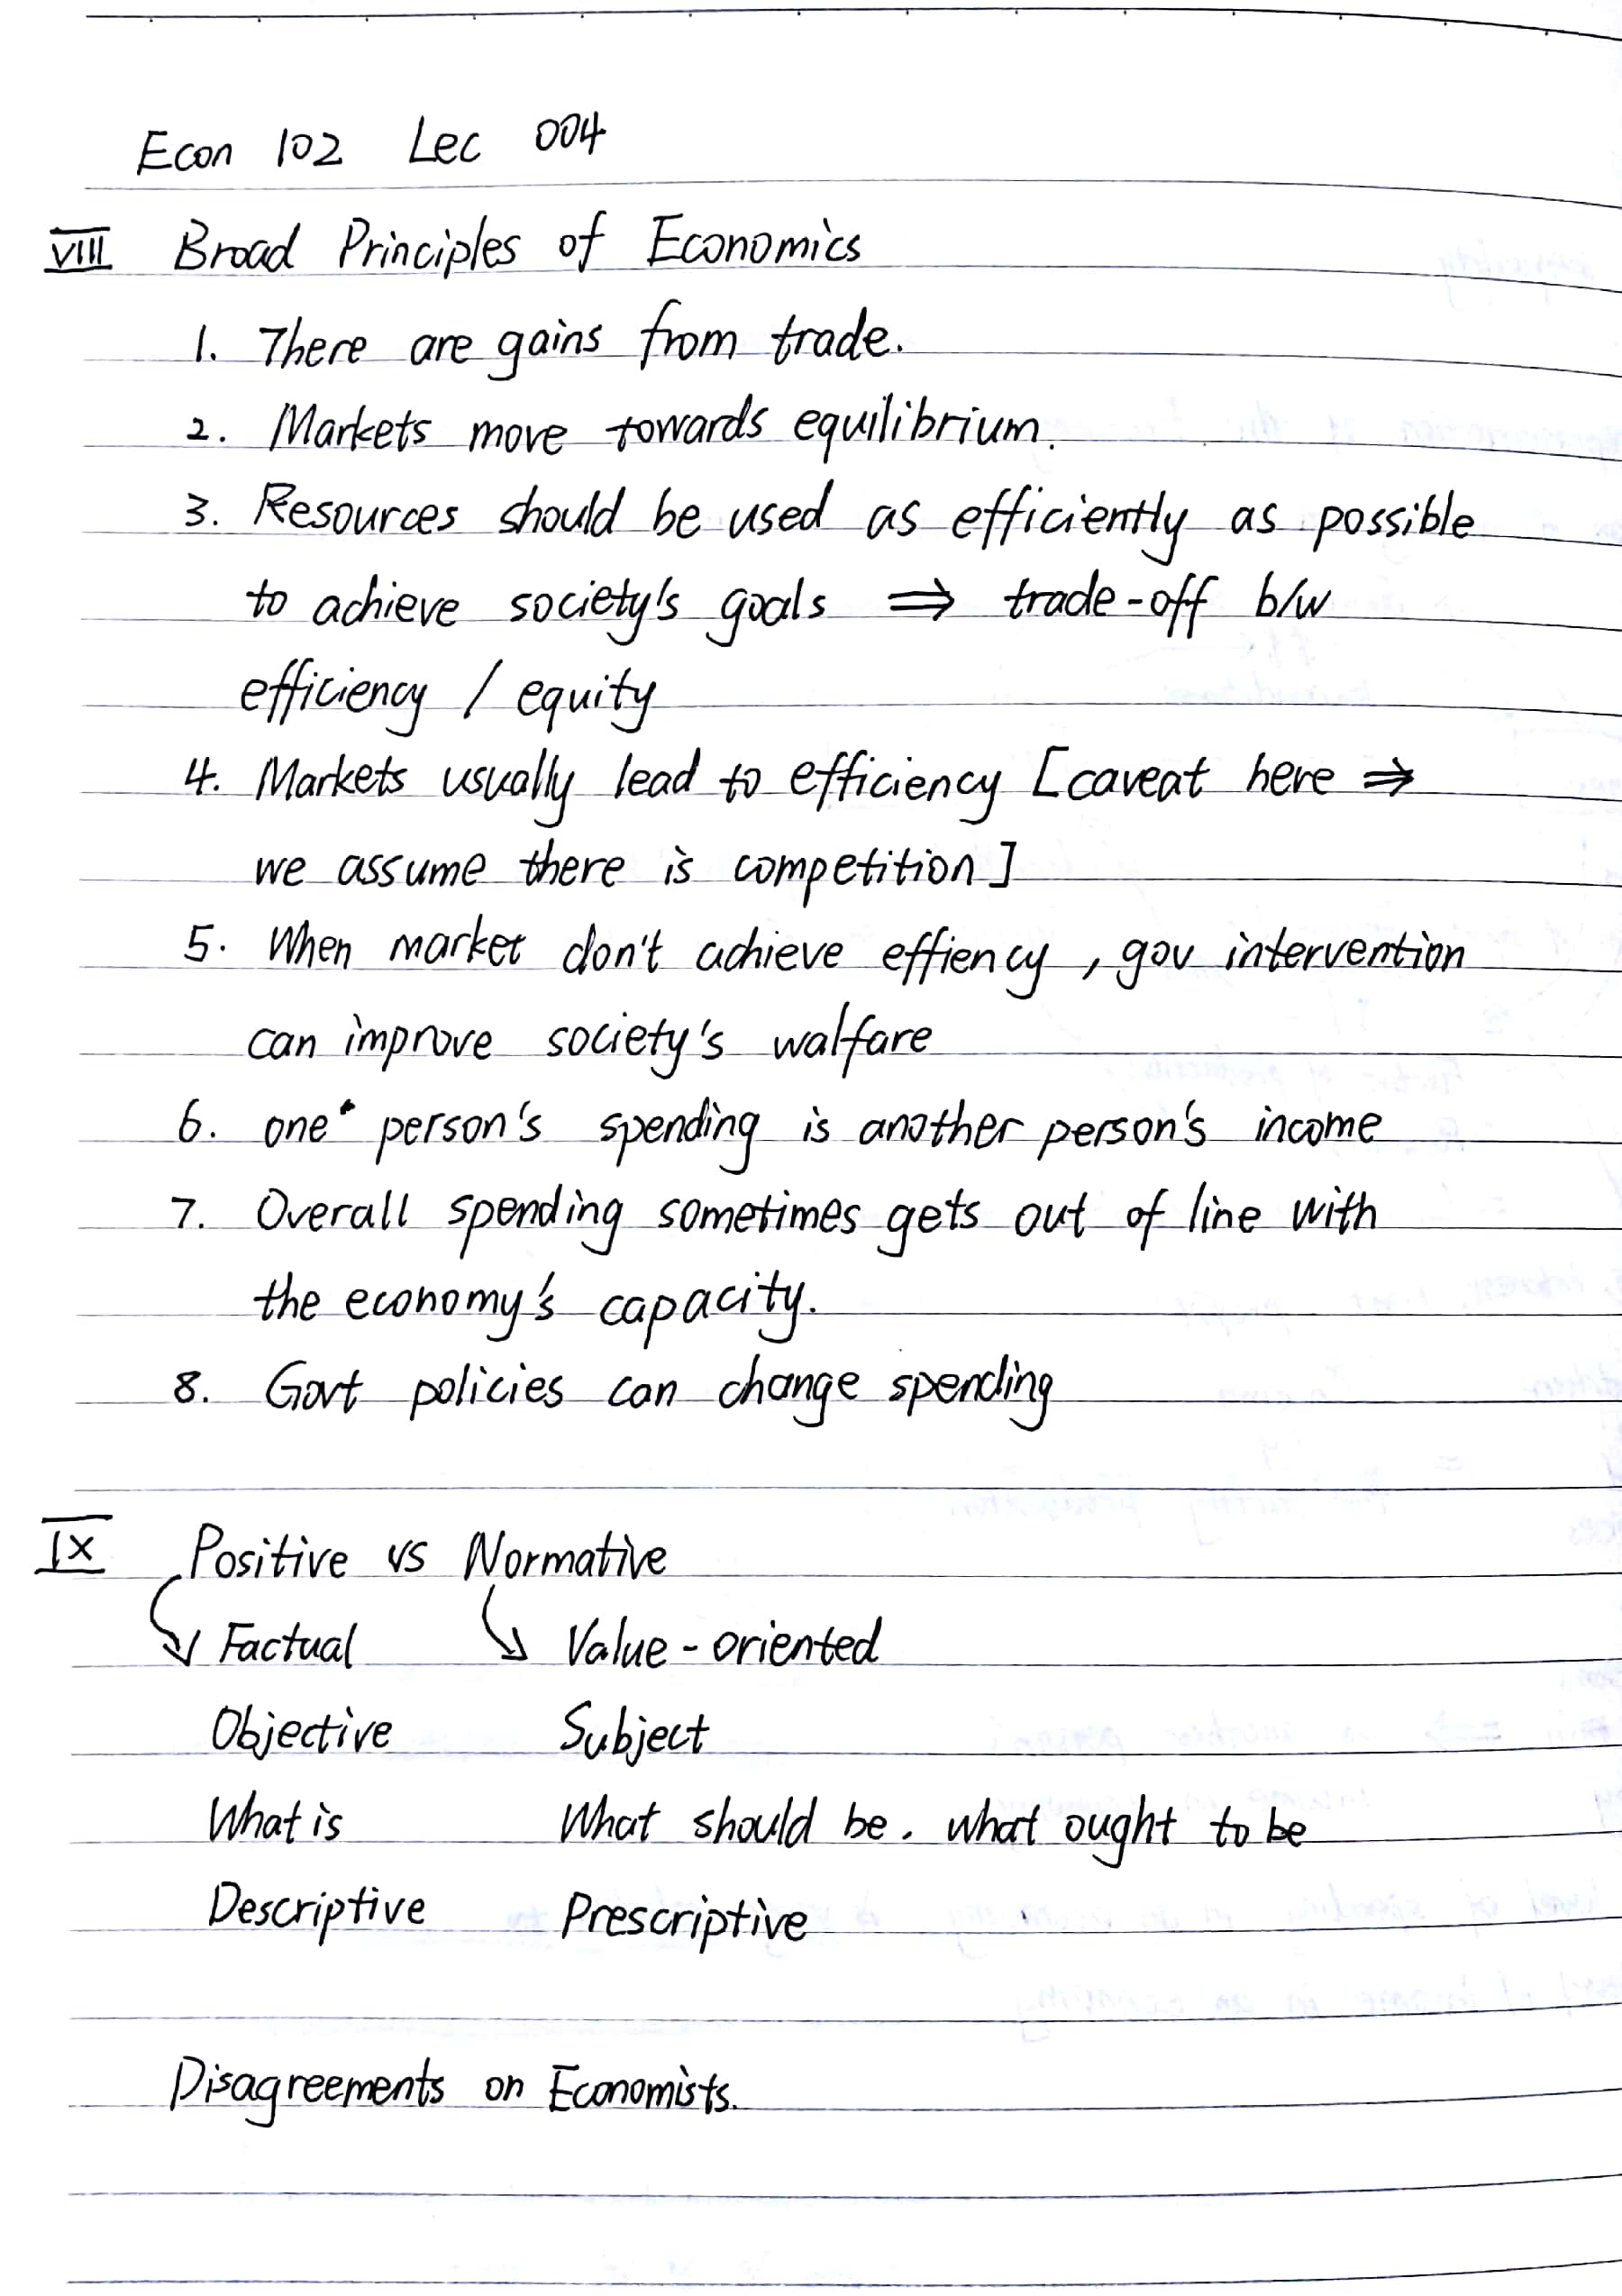 Econ 102 Lec 004
VIII Broad Principles of Economics
1. There are gains from trade.
2. Markets move towards equilibrium.
3. Resources should be used as efficiently as possible
to achieve society's goals ⇒ trade-off b/w
efficiency / equity
4. Markets usually lead to efficiency [caveat here ⇒
we assume there is competition]
5. When market don't achieve effiency, gov intervention
can improve society's walfare
6. one person's spending is another person's income
7. Overall spending sometimes gets out of line with
the economy's capacity.
8. Govt policies can change spending
IX Positive vs Normative
Factual Value-oriented
Objective Subject
What is What should be. what ought to be
Descriptive Prescriptive
Disagreements on Economists.